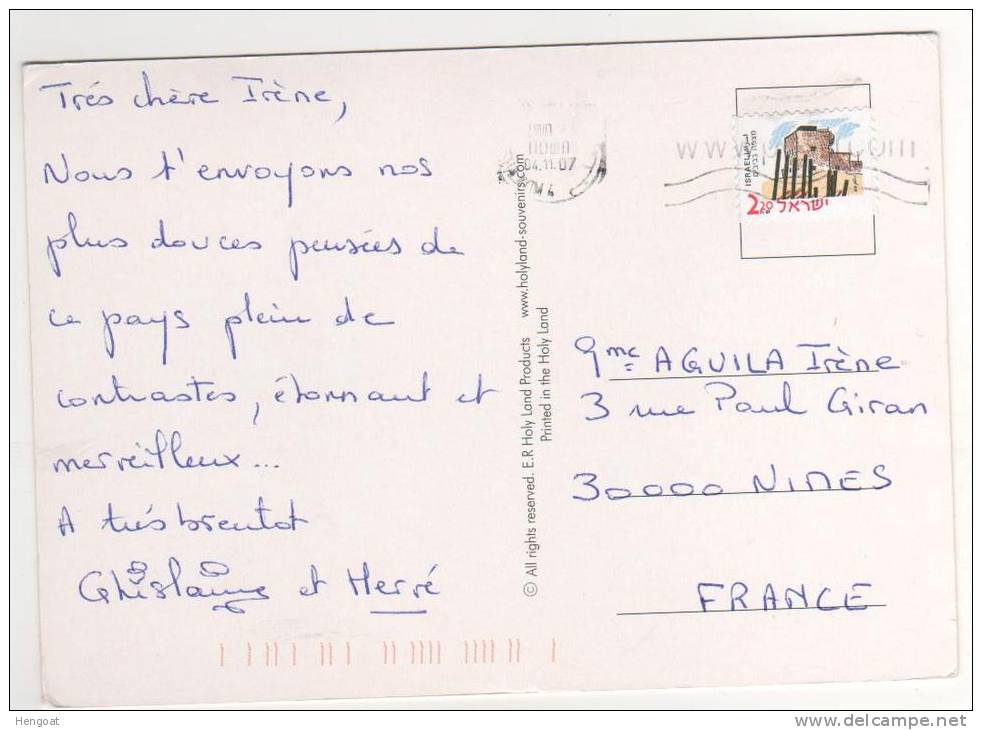 Trés chère Irène,
Nous t'envoyons nos
plus douces pensées de
ce pays plein de
contrastes, étonnant et
merveilleux...
A très bientot
Ghislaine et Hervé
04.11.07
www. .com
ISRAEL
2.20
ישראל
© All rights reserved. E.R Holy Land Products www.holyland-souvenirs.com
Printed in the Holy Land
Mme AGUILA Irène
3 rue Paul Giran
30000 NIMES
FRANCE
Hengoat
www.delcampe.net